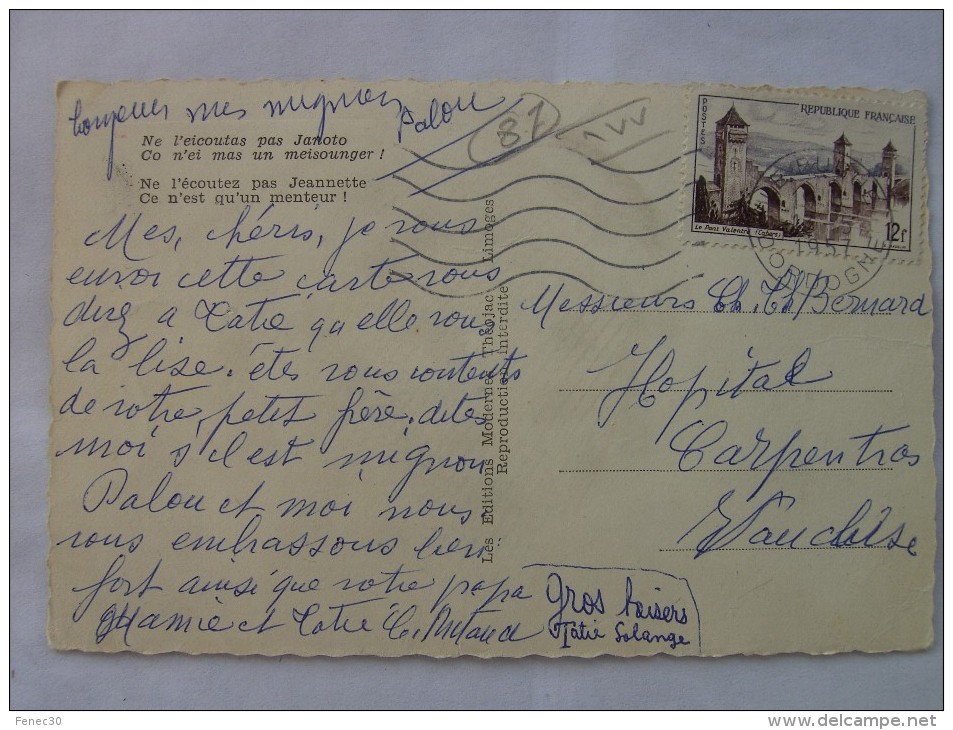 bonjour mes mignons
Palou
Ne l'eicoutas pas Janoto
Co n'ei mas un meisounger !
Ne l'écoutez pas Jeannette
Ce n'est qu'un menteur !
Mes, chéris, je vous
envoi cette carte vous
direz a Tatie qu'elle vous
la lise. étes vous contents
de votre, petit frère. dites
moi s'il est mignon
Palou et moi nous
vous embrassons bien
fort ainsi que votre papa
Mamie et Tatie C.
Gros baisers
Tatie Solange
Les Editions Modernes Théojac Limoges
Reproduction interdite
87
POSTES
REPUBLIQUE FRANÇAISE
Le Pont Valentré (Cahors)
12f
DORDOGNE
Messieurs Ch. Ch. Bernard
Hopital
Carpentras
Vaucluse
Fenec30
www.delcampe.net